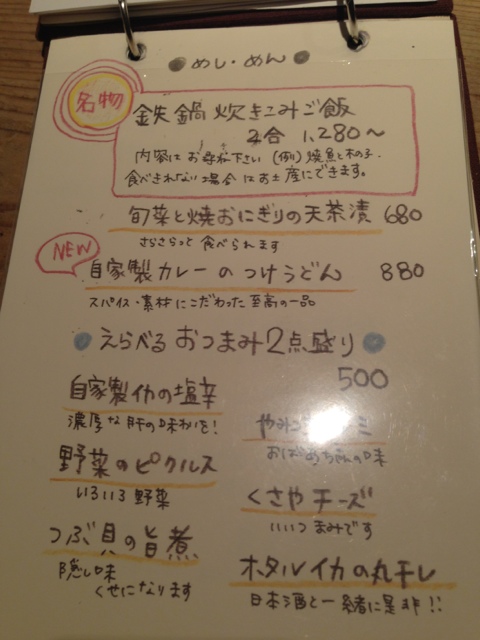 めし・めん
名物
鉄鍋炊きこみご飯
2合 1,280〜
内容はお尋ね下さい (例)焼魚と木の子
食べきれない場合はお土産にできます。
旬菜と焼おにぎりの天茶漬 680
さらさらっと食べられます
NEW
自家製カレーのつけうどん 880
スパイス・素材にこだわった至高の一品
えらべるおつまみ2点盛り
500
自家製イカの塩辛
濃厚な肝の味わい!
野菜のピクルス
いろいろ野菜
つぶ貝の旨煮
隠し味
くせになります
やみつ ミ
おばあちゃんの味
くさやチーズ
いいつまみです
ホタルイカの丸干し
日本酒と一緒に是非!!